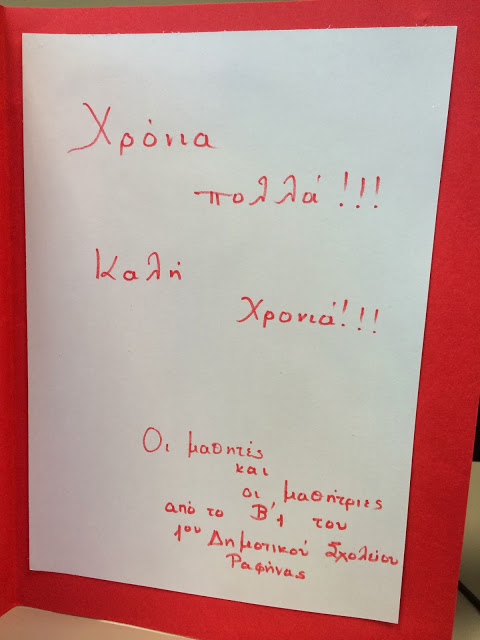 Χρόνια
πολλά!!!
Καλή
Χρονιά!!!
Οι μαθητές
και
οι μαθήτριες
από το Β'1 του
1ου Δημοτικού Σχολείου
Ραφήνας